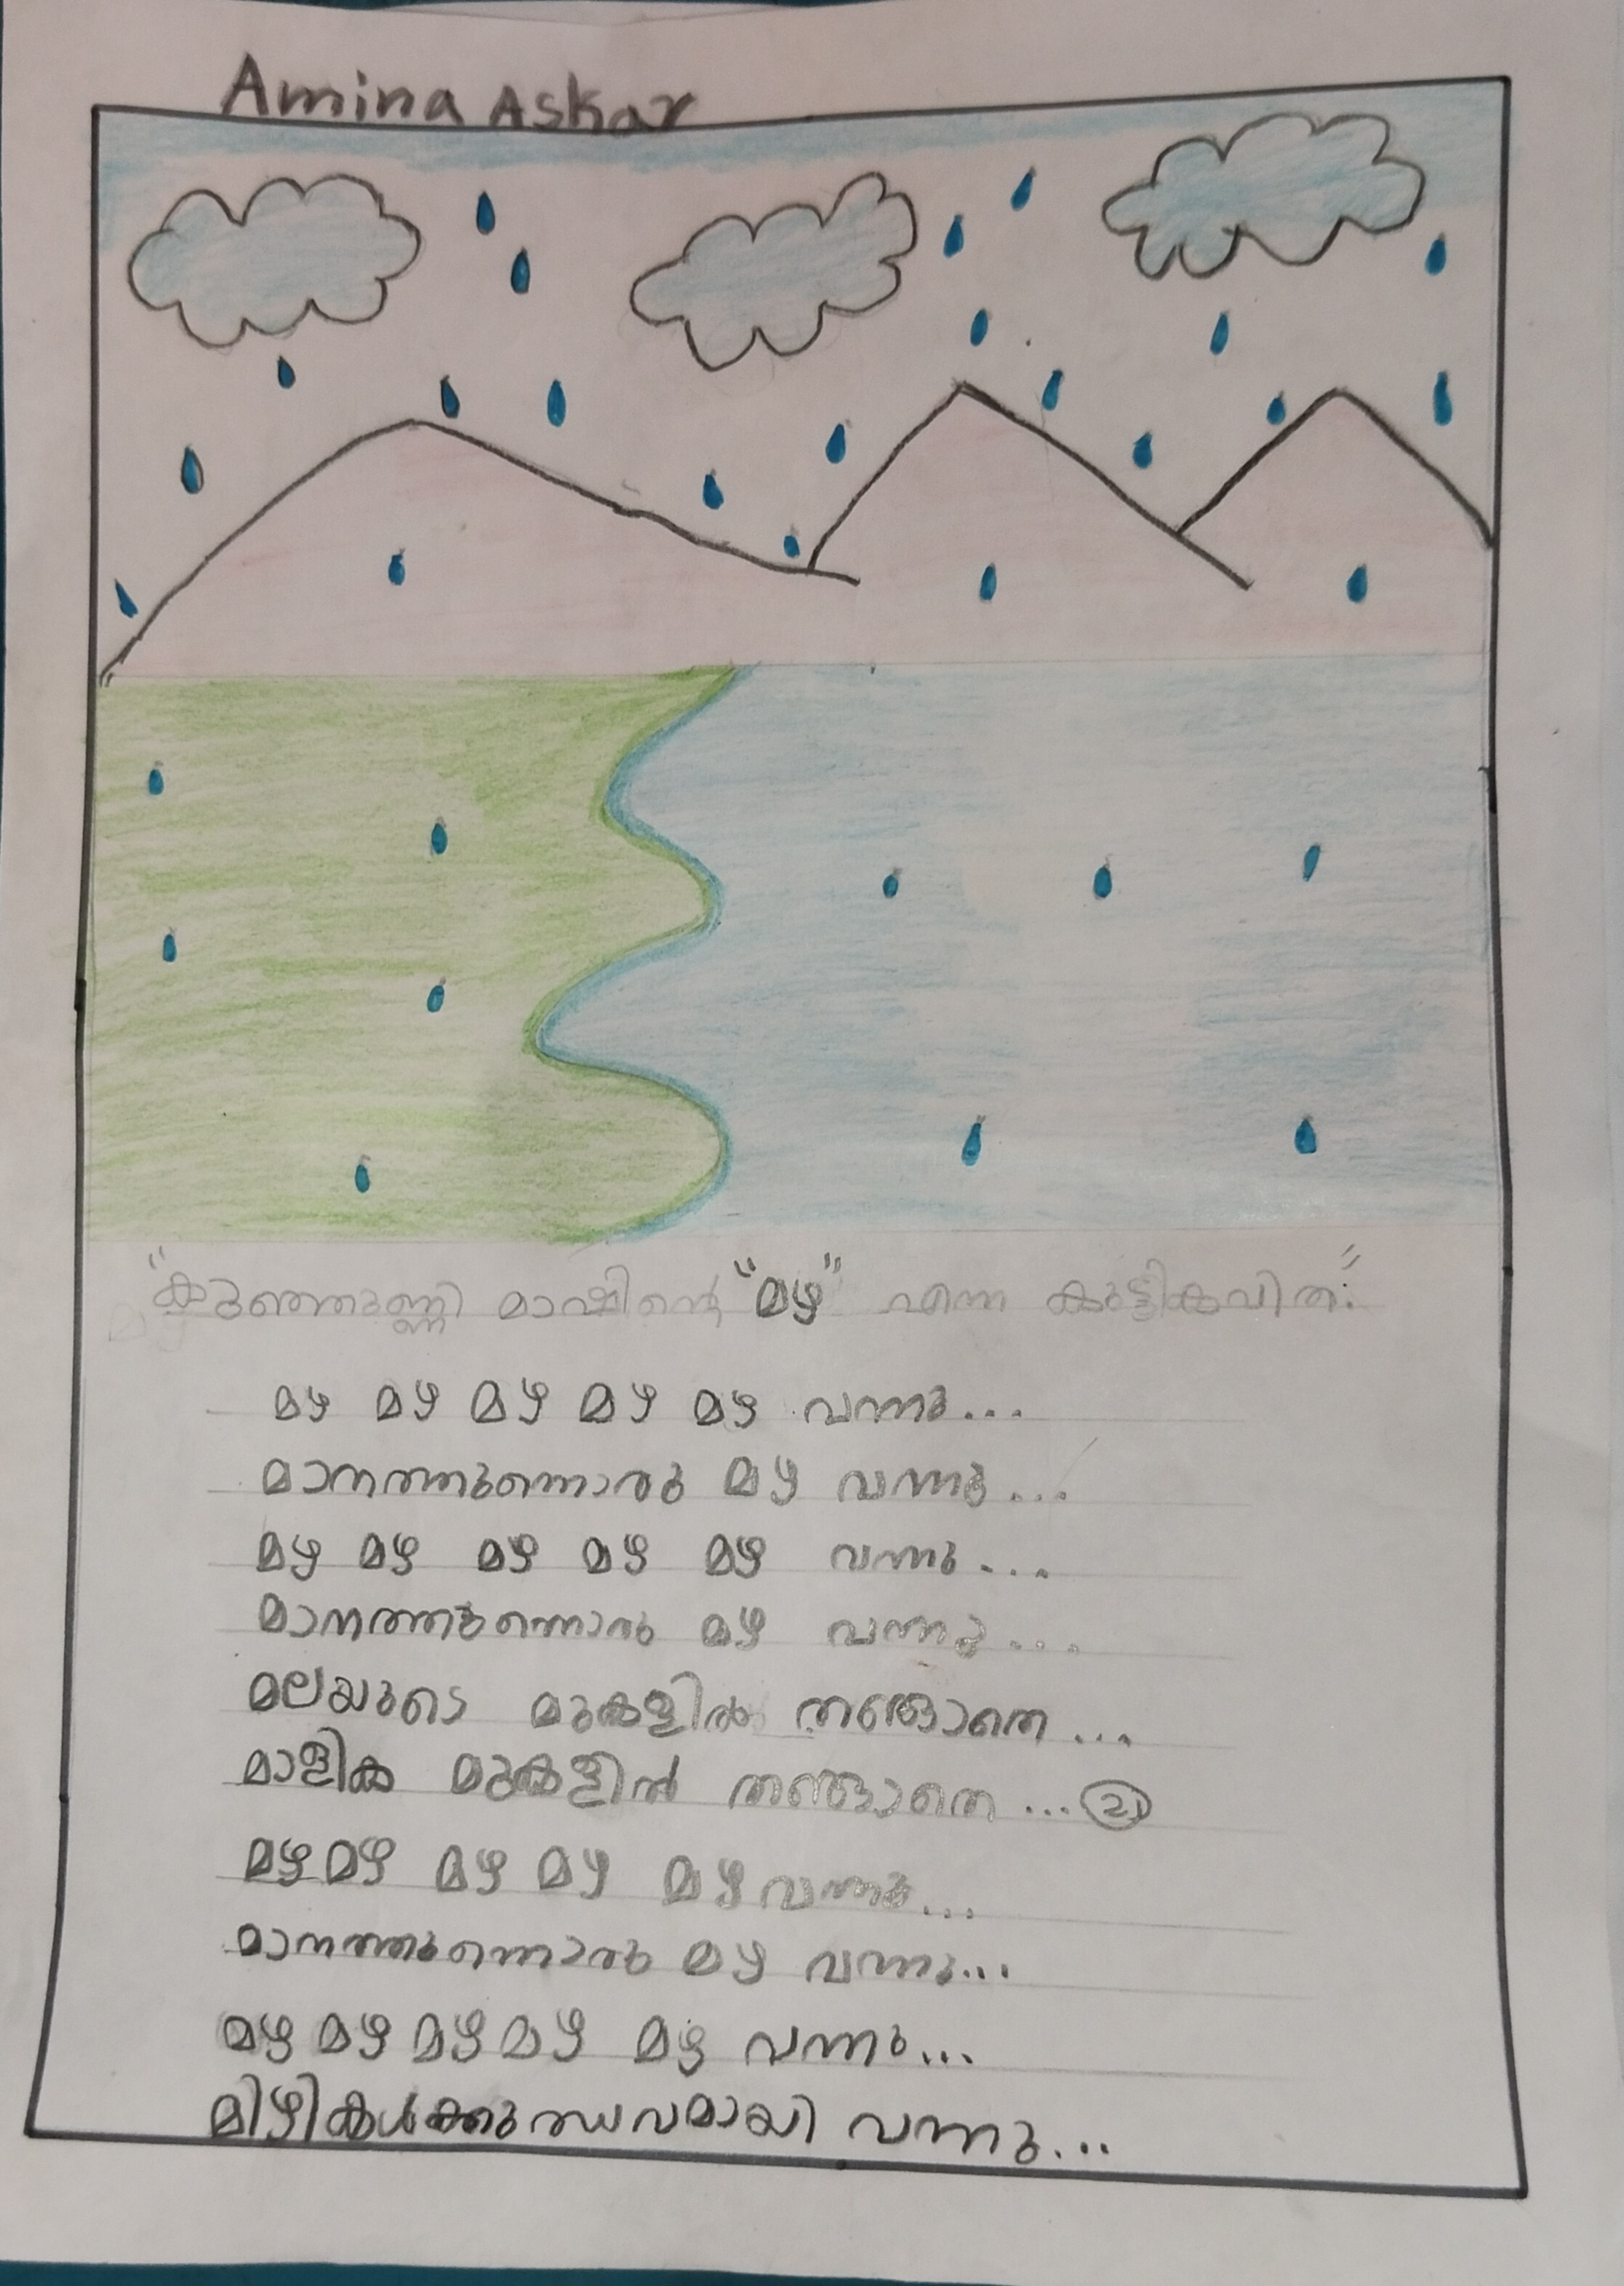 Amina Askar
"കുഞ്ഞുണ്ണി മാഷിന്റെ "മഴ" എന്ന കുട്ടികവിത."
മഴ മഴ മഴ മഴ മഴ വന്നു...
മാനത്തുന്നൊരു മഴ വന്നു...
മഴ മഴ മഴ മഴ മഴ വന്നു...
മാനത്തുന്നൊരു മഴ വന്നു...
മലയുടെ മുകളിൽ തങ്ങാതെ...
മാളിക മുകളിൽ തങ്ങാതെ... 2
മഴ മഴ മഴ മഴ മഴ വന്നു...
മാനത്തുന്നൊരു മഴ വന്നു...
മഴ മഴ മഴ മഴ മഴ വന്നു...
മിഴികൾക്കുത്സവമായി വന്നു...